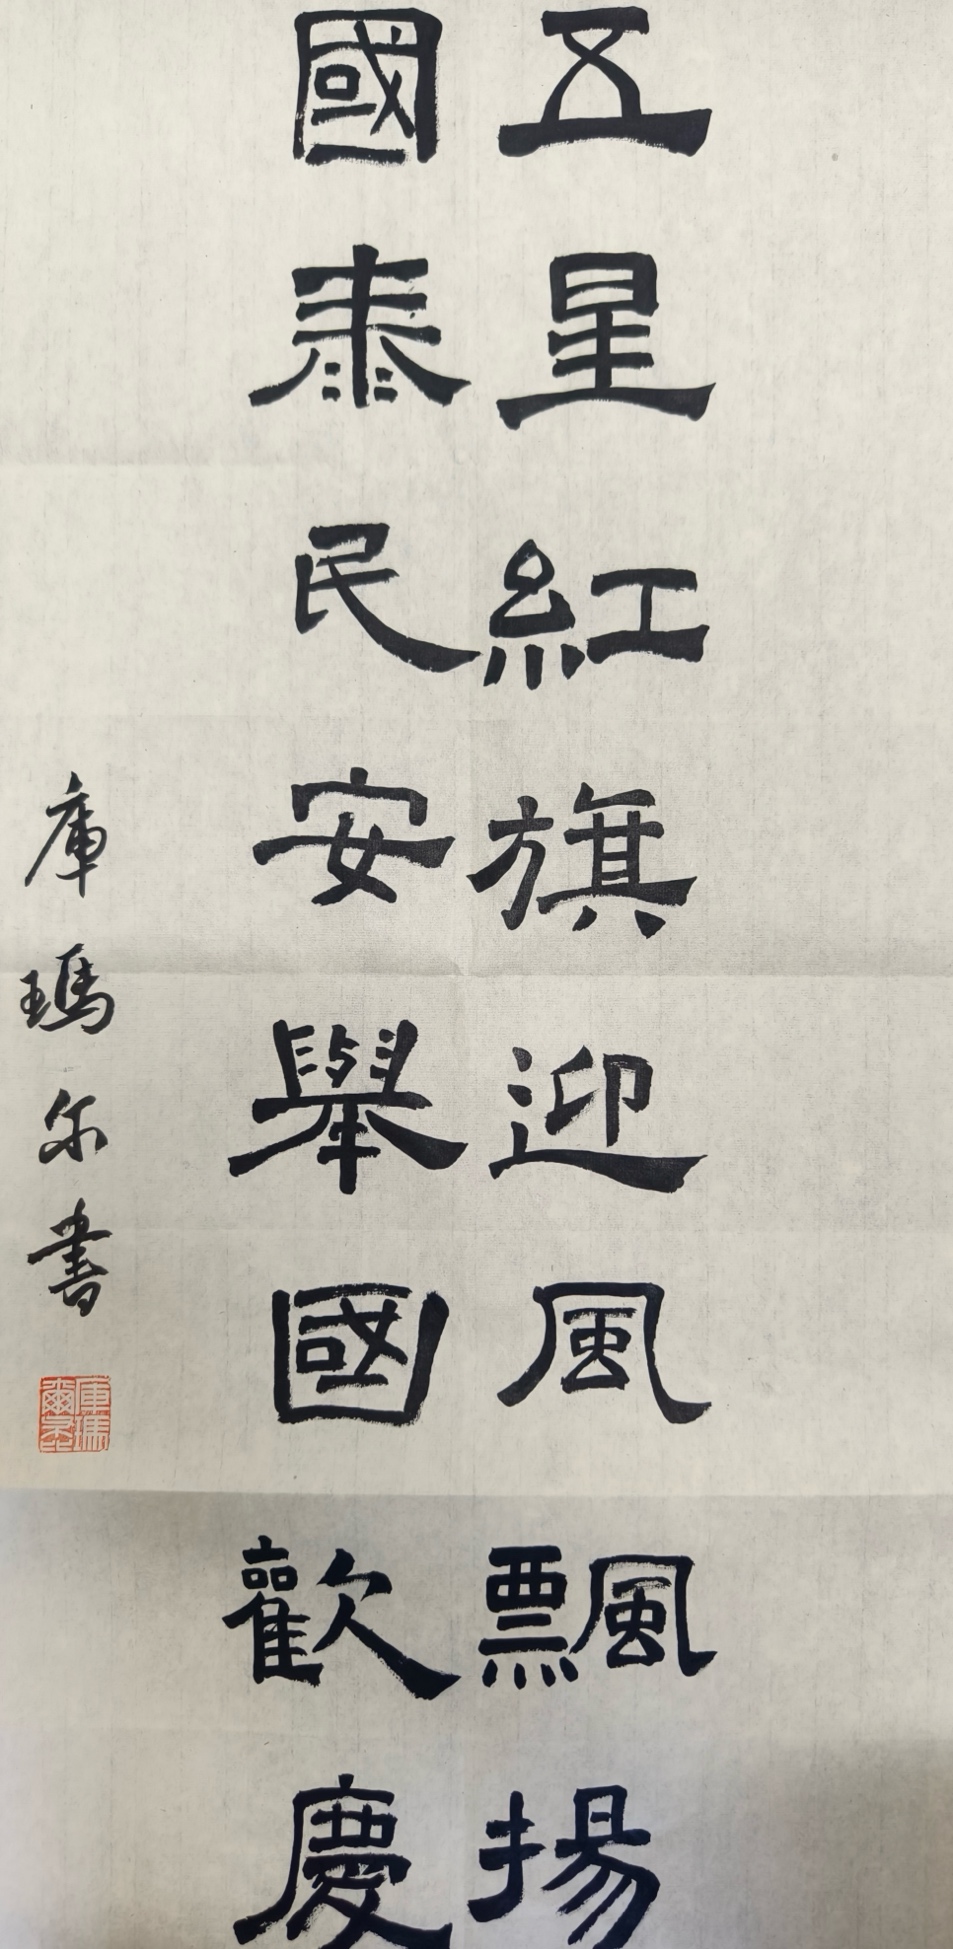 五星紅旗迎風飄揚
國泰民安舉國歡慶
庫瑪尔書